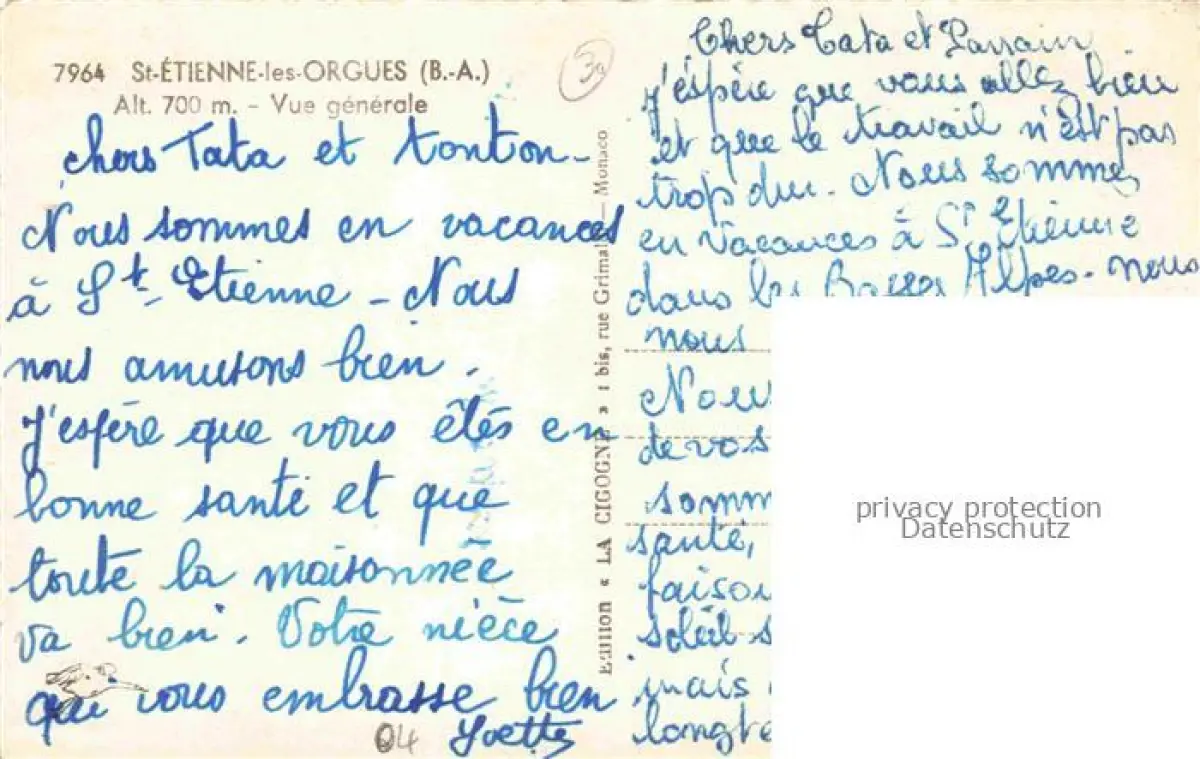 7964 St-ÉTIENNE-les-ORGUES (B.-A.)
Alt. 700 m. - Vue générale
chers Tata et tonton -
Nous sommes en vacances
à St. Etienne - Nous
nous amusons bien.
J'espère que vous êtes en
bonne santé et que
toute la maisonnée
va bien. Votre nièce
qui vous embrasse bien
Yvette
04
Edition « LA CIGOGNE » 1 bis, rue Grimaldi — Monaco
Chers Tata et Parrain
j'espère que vous allez bien
et que le travail n'est pas
trop dur. Nous sommes
en vacances à St Etienne
dans les Basses Alpes. nous
nous
Nous
de vos
somm
santé,
faison
soleil s
mais
longte
privacy protection
Datenschutz